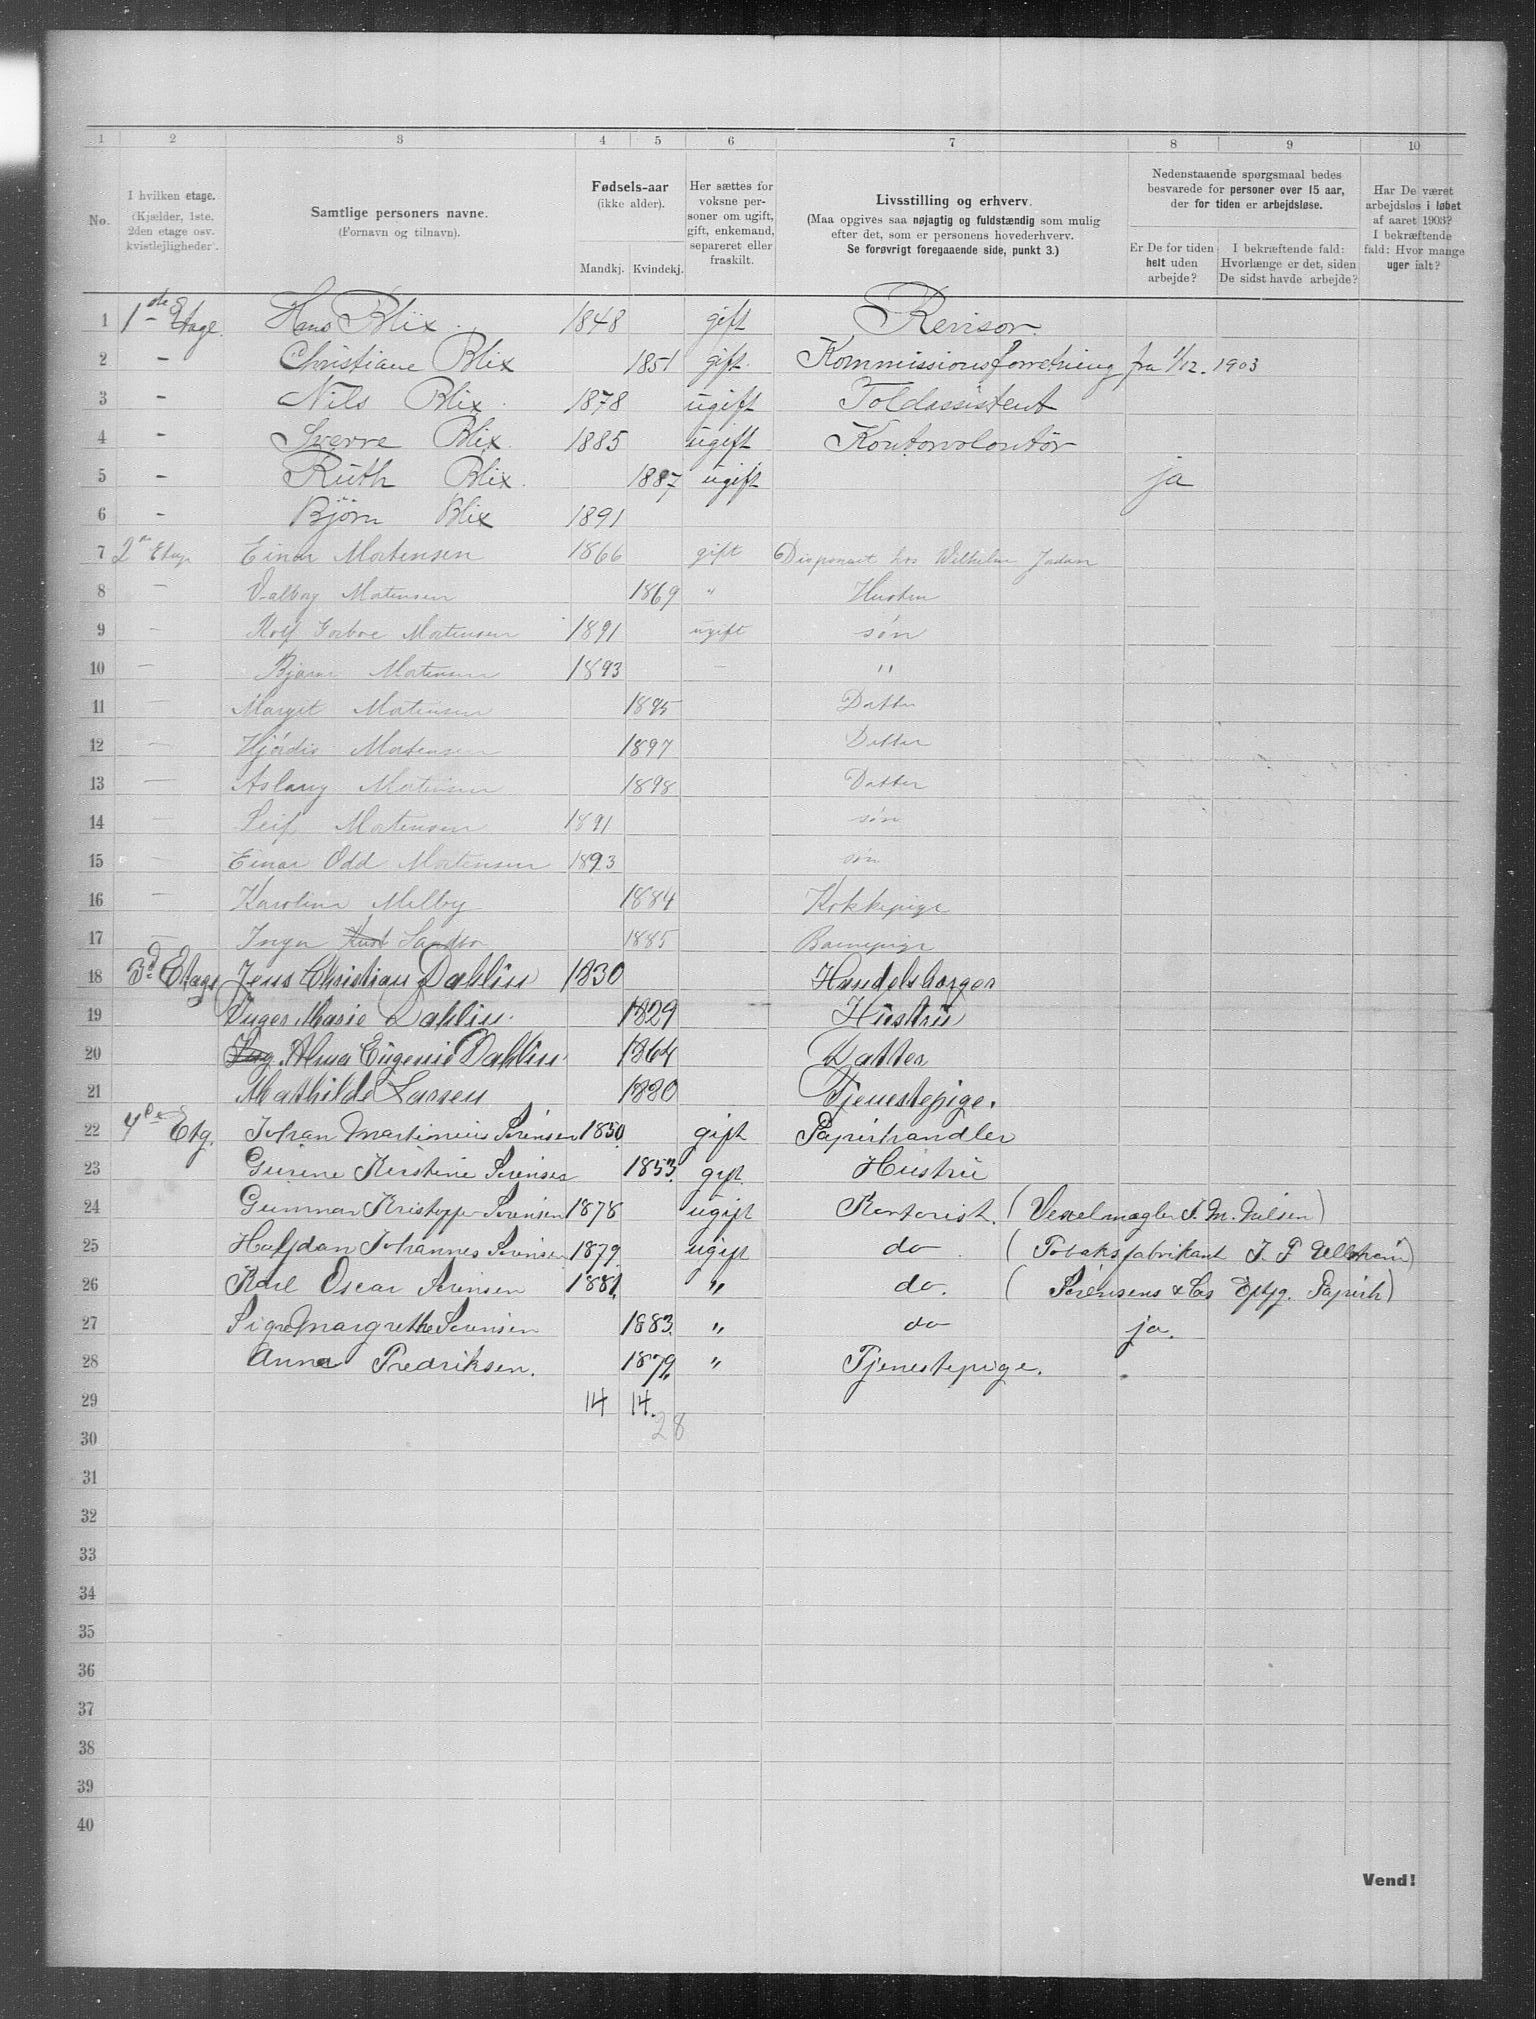 1 2 3 4 5 6 7 8 9 10
No. I hvilken etage. (Kjælder, 1ste. 2den etage osv. kvistlejligheder.
Samtlige personers navne. (Fornavn og tilnavn).
Fødsels-aar (ikke alder). Mandkj. Kvindekj.
Her sættes for voksne personer om ugift, gift, enkemand, separeret eller fraskilt.
Livsstilling og erhverv. (Maa opgives saa nøjagtig og fuldstændig som mulig efter det, som er personens hovederhverv. Se forøvrigt foregaaende side, punkt 3.)
Nedenstaaende spørgsmaal bedes besvarede for personer over 15 aar, der for tiden er arbejdsløse.
Er De for tiden helt uden arbejde?
I bekræftende fald: Hvorlænge er det, siden De sidst havde arbejde?
Har De været arbejdsløs i løbet af aaret 1903? I bekræftende fald: Hvor mange uger ialt?
1 1ste Etage Hans Blix 1848 gift Revisor
2 - Christiane Blix 1851 gift Kommissionsforretning fra 1/12. 1903
3 - Nils Blix 1878 ugift Toldassistent
4 - Sverre Blix. 1885 ugift Kontorvolontör
5 - Ruth Blix. 1887 ugift ja
6 - Bjørn Blix 1891
7 2 Etage Einar Mortensen 1866 gift Disponent hos Wilhelm Jordan
8 - Valborg Mortensen 1869 " Hustru
9 - Rolf Mortensen 1891 ugift søn
10 - Bjarne Mortensen 1893 - "
11 Margit Mortensen 1895 Datter
12 - Hjördis Mortensen 1897 Datter
13 - Aslaug Mortensen 1898 Datter
14 - Leif Mortensen 1891 søn
15 - Einar Odd Mortensen 1893 søn
16 - Karoline Melby 1884 Kokkepige
17 - Inga 1885 Barnepige
18 3d Etage Jens Christian Dahlin 1830 Handelsborger
19 Inger Marie Dahlin. 1829 Hustru
20 Ing. Alma Eugenie Dahlin 1864 Datter
21 Mathilde Larsen 1880 Tjenestepige.
22 4de Etg. Johan Martinius Sørensen 1850 gift Papirhandler
23 Gurine Kirstine Sørensen 1853. gift. Hustru
24 Gunnar Kristoffer Sørensen 1878 ugift Kontorist. (Vexelmægler J. M. Nilsen)
25 Halfdan Johannes Sørensen 1879. ugift do. (Tobaksfabrikant J. P Ellstrøm)
26 Karl Oscar Sørensen 1881. " do. (Sörensens & Co Eftfg. Papirh)
27 Signe Margrethe Sørensen 1883. " do ja.
28 Anna Fredriksen. 1879. " Tjenestepige.
29 14 14.
28
30
31
32
33
34
35
36
37
38
39
40
Vend!